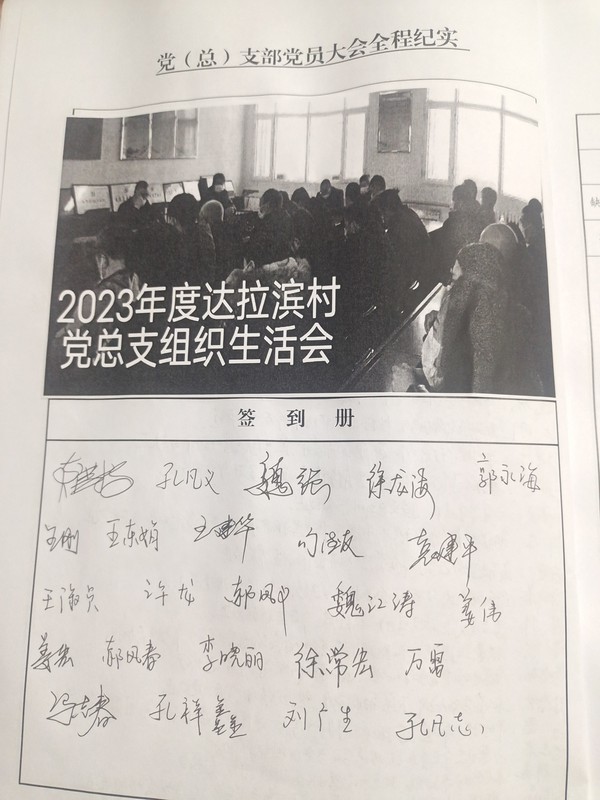 党（总）支部党员大会全程纪实
2023年度达拉滨村
党总支组织生活会
签 到 册
孔凡义 魏强 徐龙海 郭永海
王刚 王东娟 王建华 袁建平
王海员 许龙 郝凤 魏江涛 姜伟
姜宏 郝凤春 李晓丽 徐常宏 万雷
冯志春 孔祥鑫 刘广生 孔凡志
缺